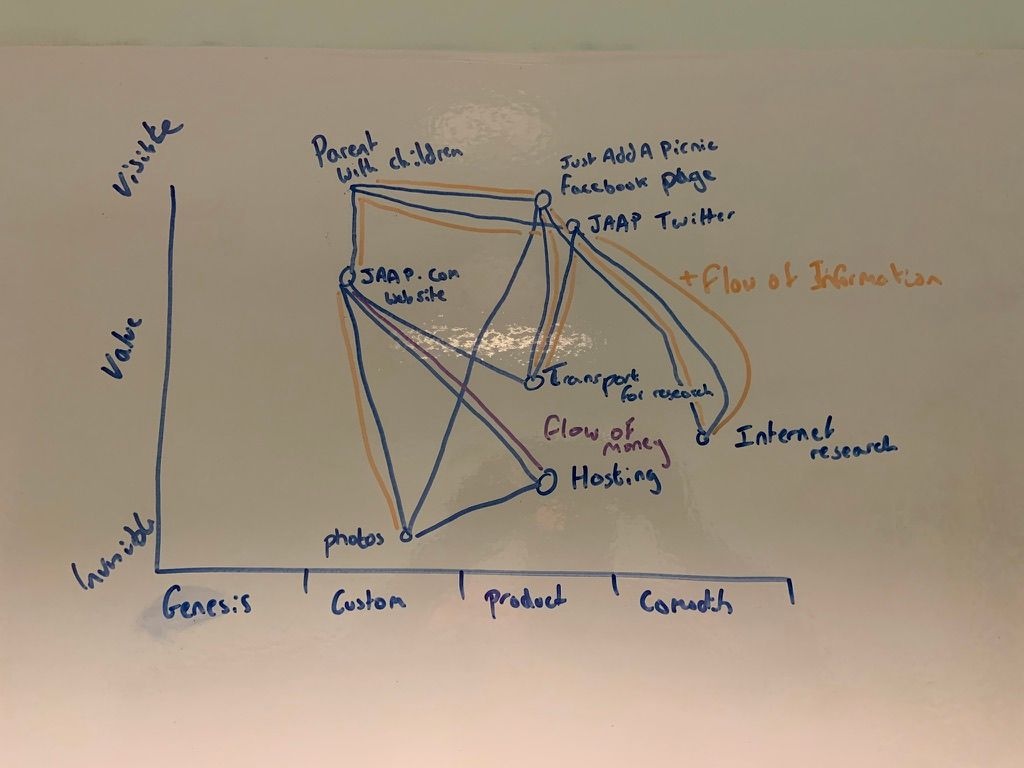 Visible
Parent
with children
Just Add A Picnic
Facebook page
JAAP Twitter
JAAP.com
website
+ Flow of Information
Value
Transport
for research
Flow of
money
Internet
research
Hosting
photos
Invisible
Genesis
Custom
Product